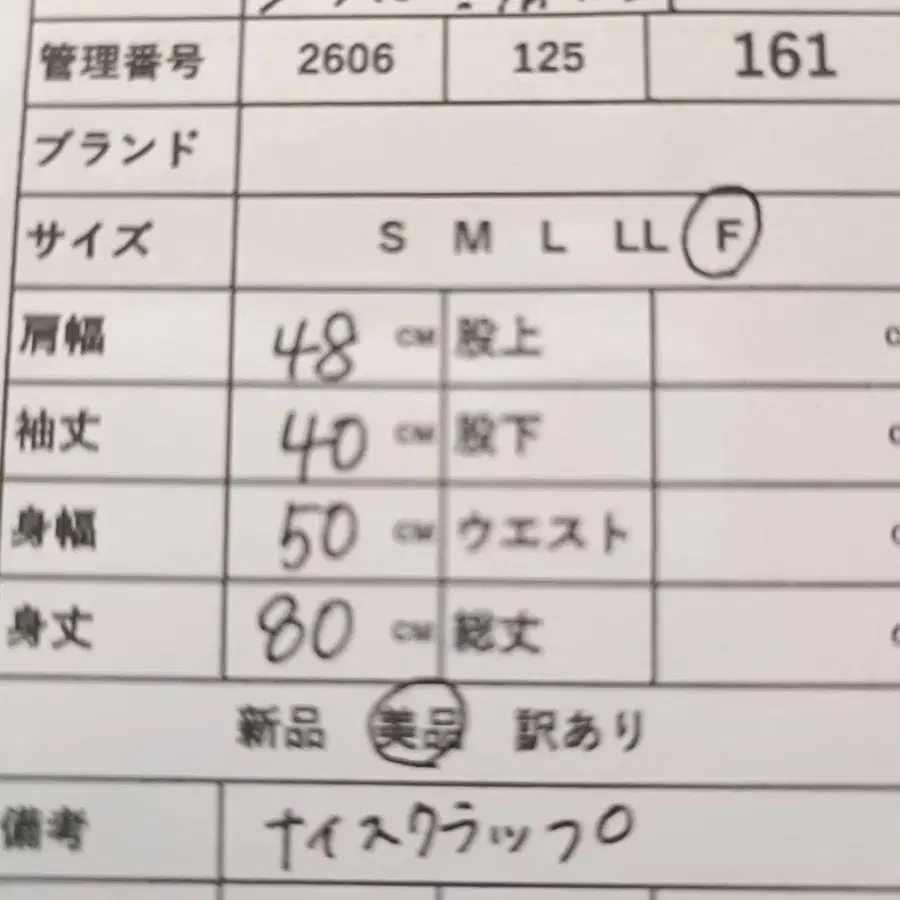 管理番号 2606 125 161
ブランド
サイズ S M L LL F
肩幅 48 CM 股上
袖丈 40 CM 股下
身幅 50 CM ウエスト
身丈 80 CM 総丈
新品 美品 訳あり
備考 ナイスクラップ